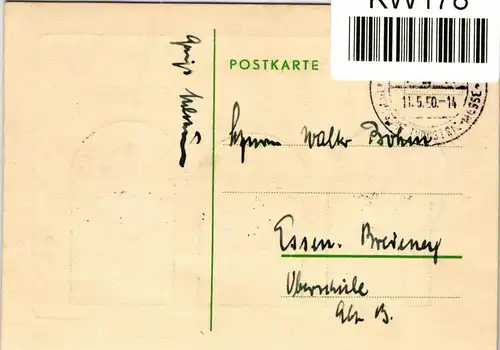 KW178
POSTKARTE
11.5.50.-14
MESSE
Herrn Walter Böhm
Essen-Bredeney
Oberschule
Abt B.